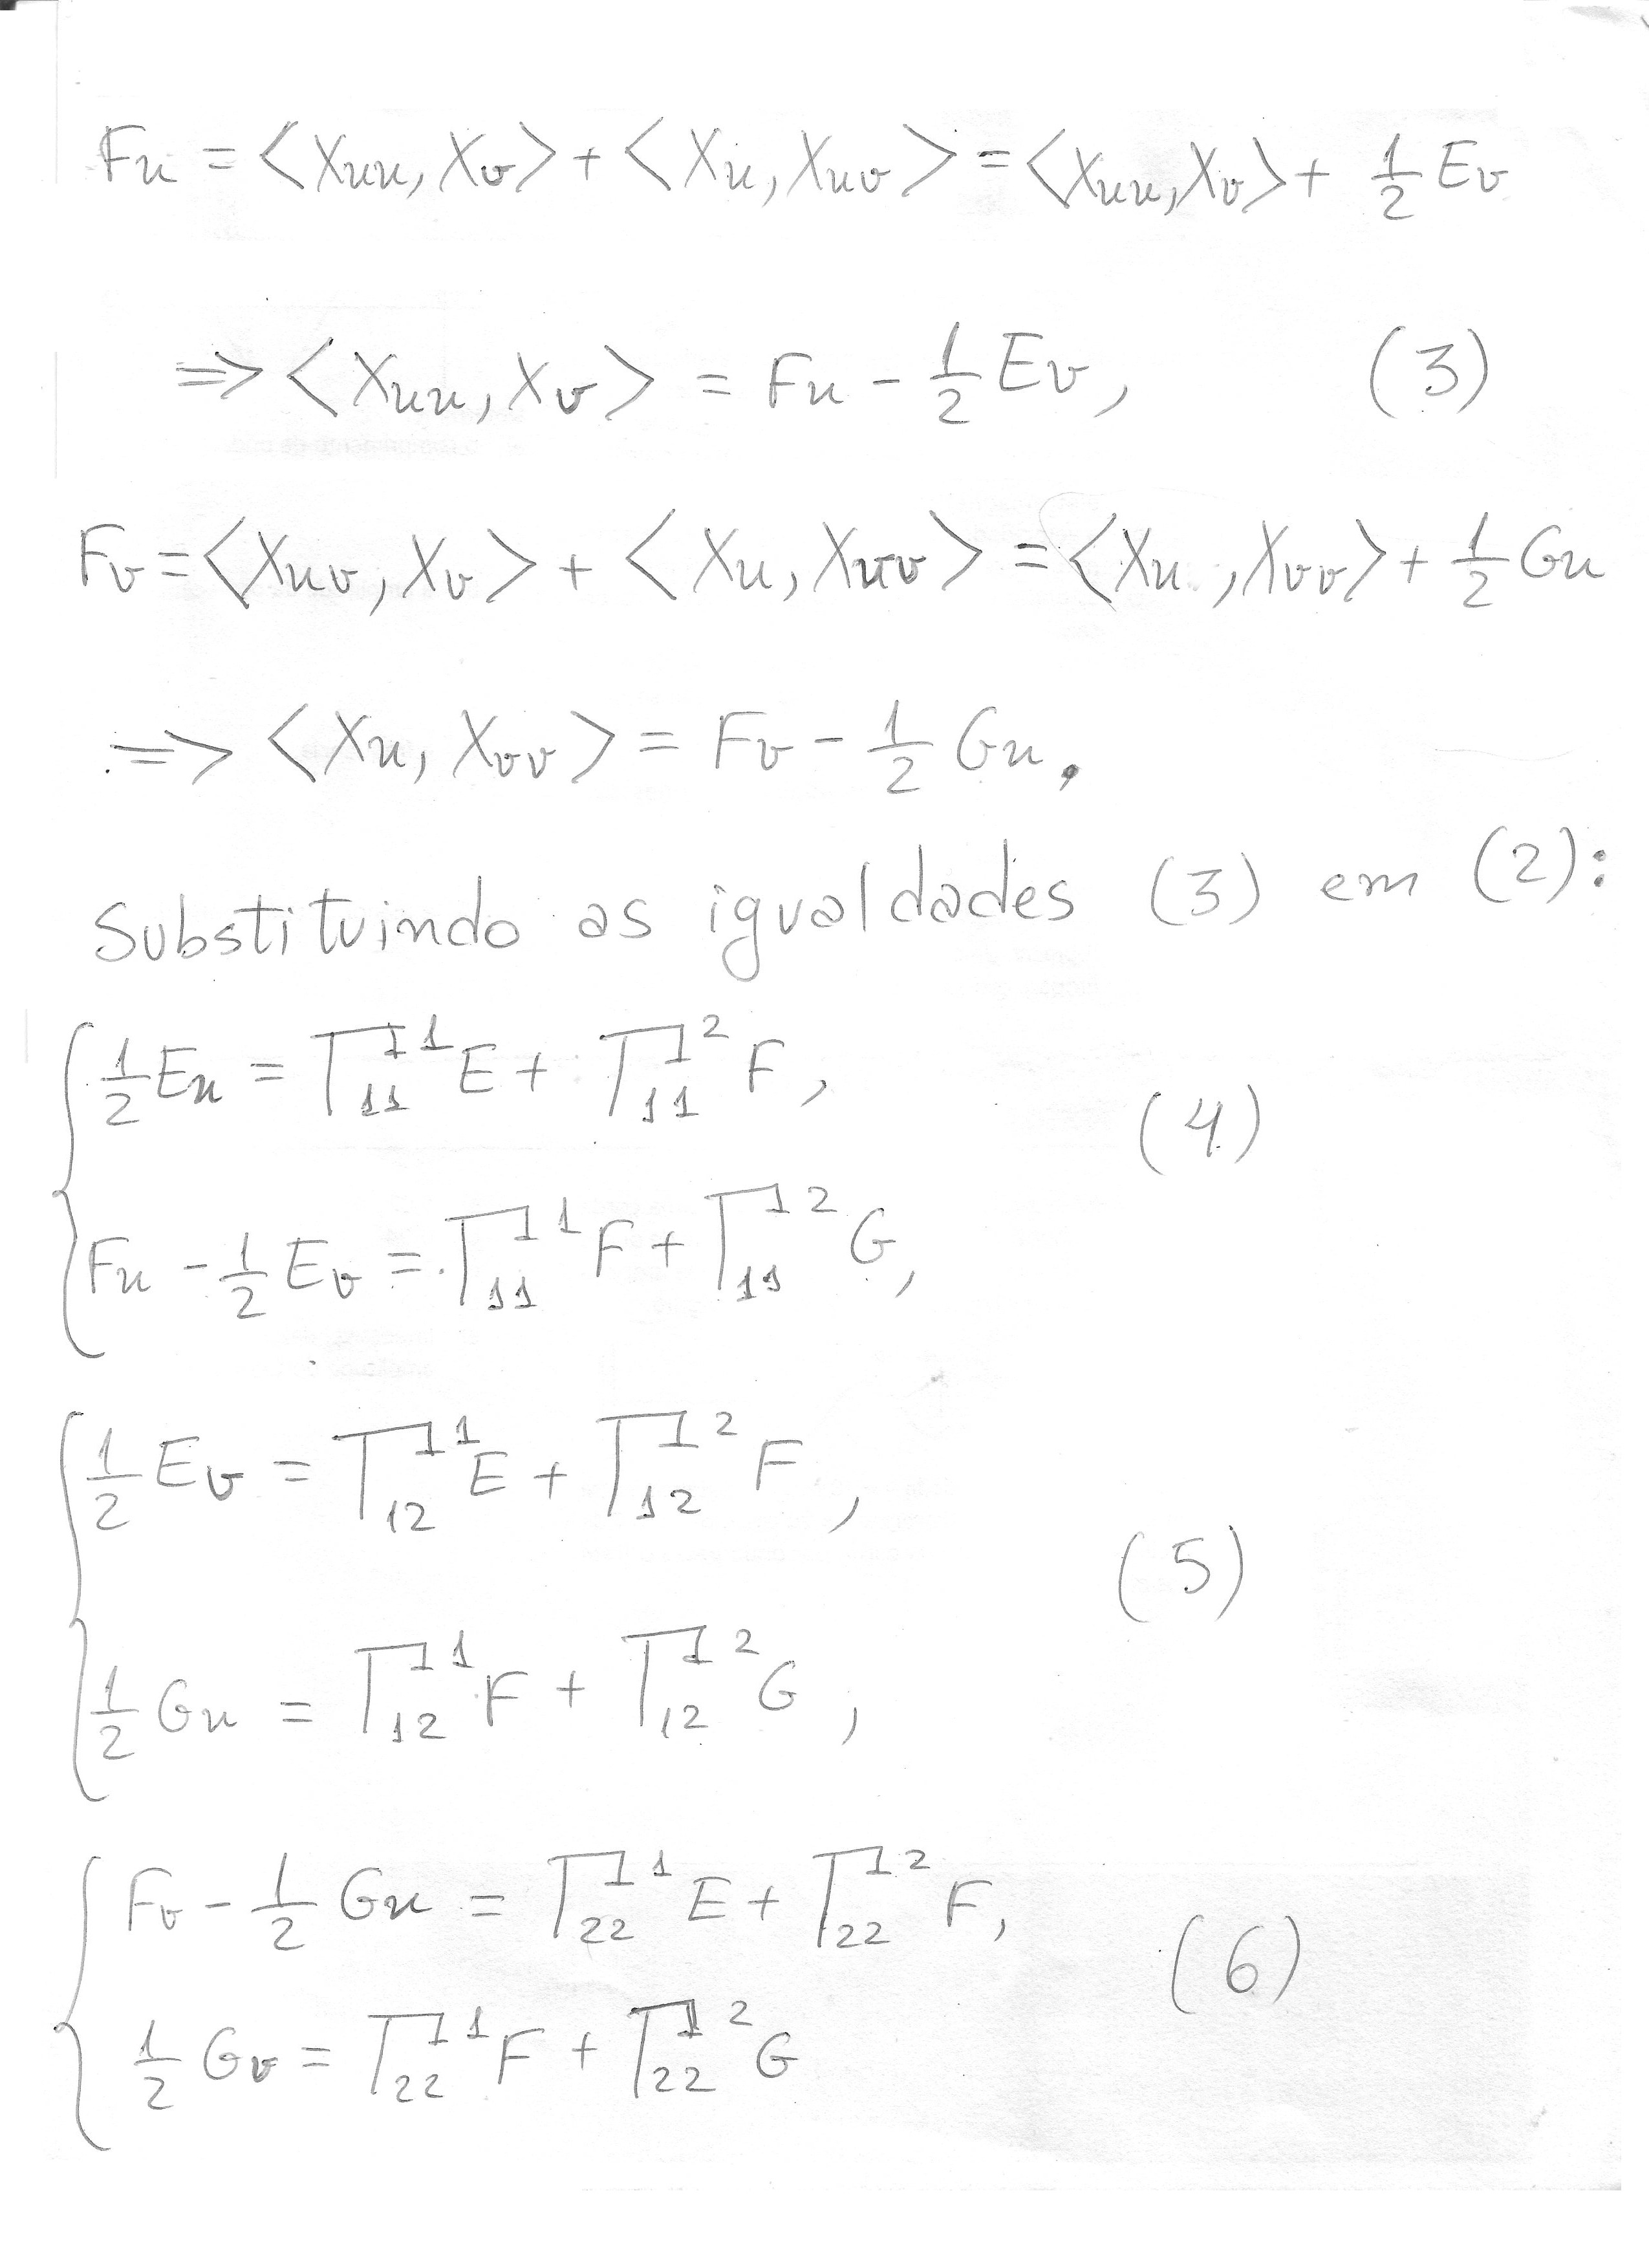 Fu = <Xuu, Xv> + <Xu, Xuv> = <Xuu, Xv> + 1/2 Ev
=> <Xuu, Xv> = Fu - 1/2 Ev, (3)
Fv = <Xuv, Xv> + <Xu, Xvv> = <Xu, Xvv> + 1/2 Gu
=> <Xu, Xvv> = Fv - 1/2 Gu.
Substituindo as igualdades (3) em (2):
1/2 Eu = Γ₁₁¹ E + Γ₁₁² F, (4)
Fu - 1/2 Ev = Γ₁₁¹ F + Γ₁₁² G,
1/2 Ev = Γ₁₂¹ E + Γ₁₂² F, (5)
1/2 Gu = Γ₁₂¹ F + Γ₁₂² G,
Fv - 1/2 Gu = Γ₂₂¹ E + Γ₂₂² F, (6)
1/2 Gv = Γ₂₂¹ F + Γ₂₂² G